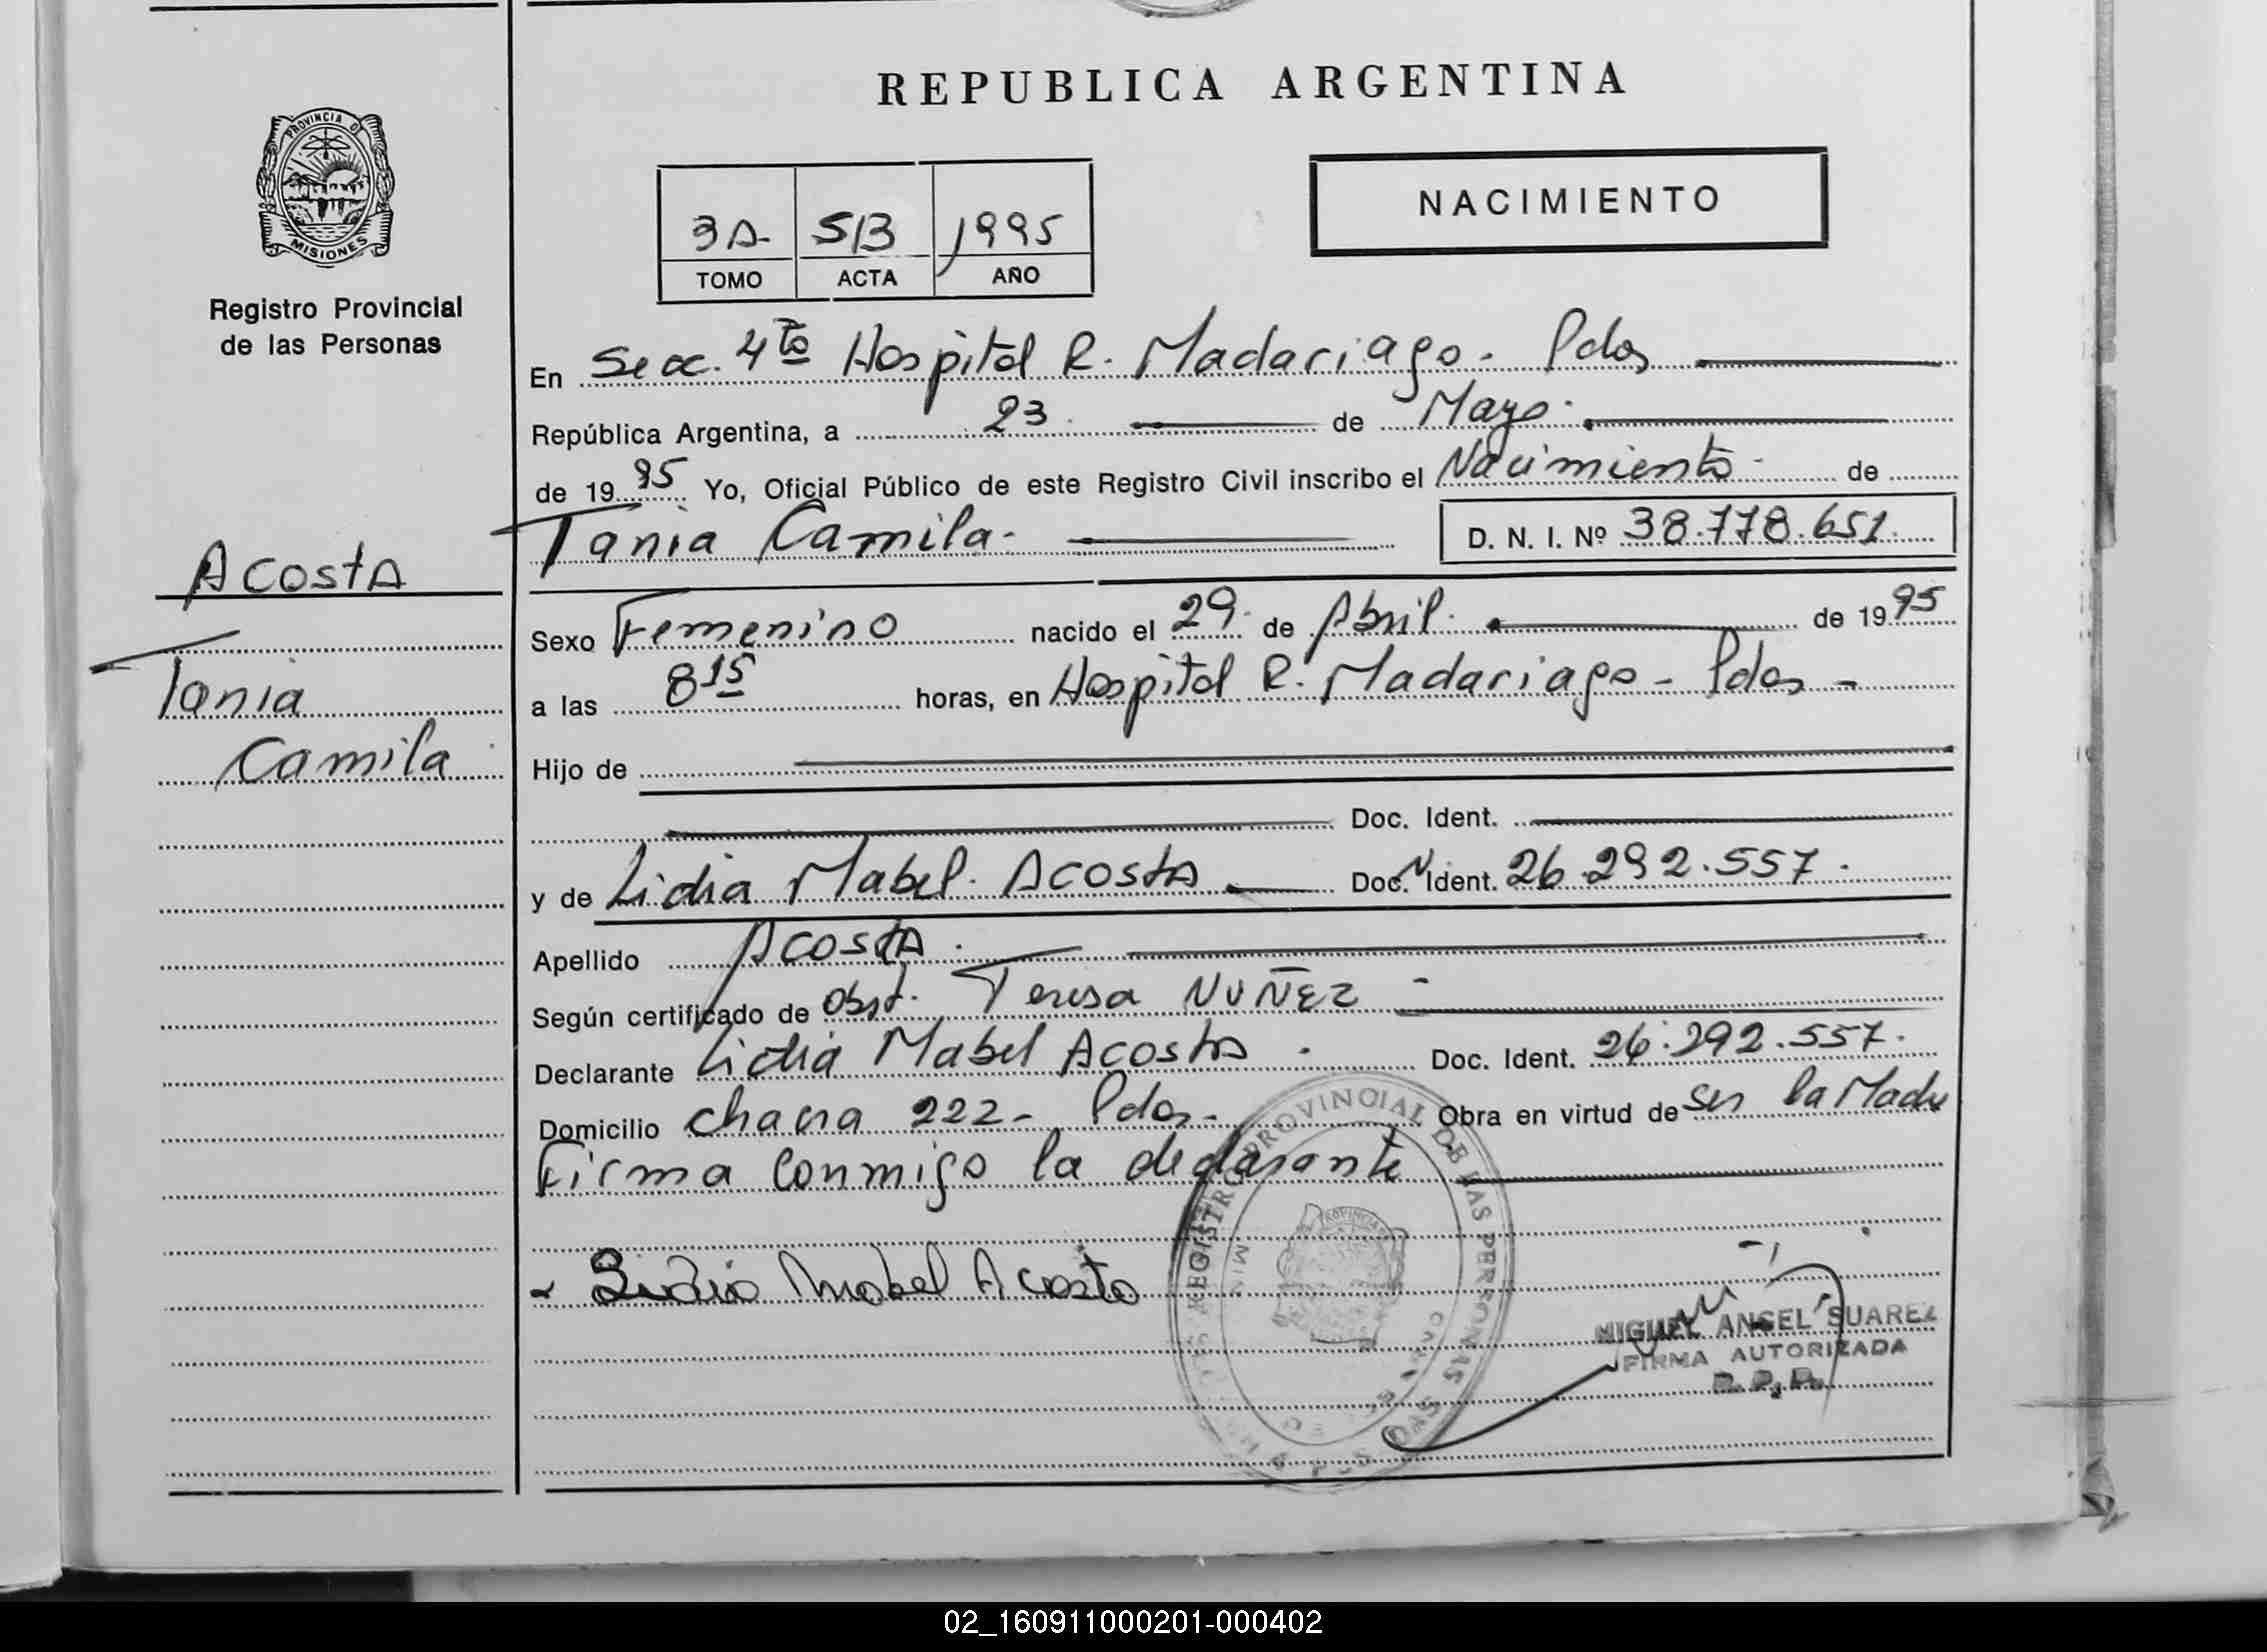 REPUBLICA ARGENTINA
PROVINCIA DE
MISIONES
Registro Provincial
de las Personas
3A 513 1995
TOMO ACTA AÑO
NACIMIENTO
En Secc. 4to Hospital R. Madariaga - Pdas
República Argentina, a 23 de Mayo.
de 1995 Yo, Oficial Público de este Registro Civil inscribo el Nacimiento de
Tania Camila.
D. N. I. Nº 38.778.651.
Acosta
Tania
Camila
Sexo Femenino nacido el 29 de Abril. de 1995
a las 8 15 horas, en Hospital R. Madariaga - Pdas -
Hijo de
Doc. Ident.
y de Lidia Mabel Acosta Doc. Ident. 26.292.557.
Apellido Acosta.
Según certificado de Obst. Teresa NUÑEZ -
Declarante Lidia Mabel Acosta. Doc. Ident. 26.292.557.
Domicilio Chacra 222 - Pdas - Obra en virtud de ser la Madre
Firma conmigo la declarante
- Lidia Mabel Acosta
REGISTRO PROVINCIAL DE LAS PERSONAS
MIGUEL ANGEL SUAREZ
FIRMA AUTORIZADA
R. P. P.
02_160911000201-000402